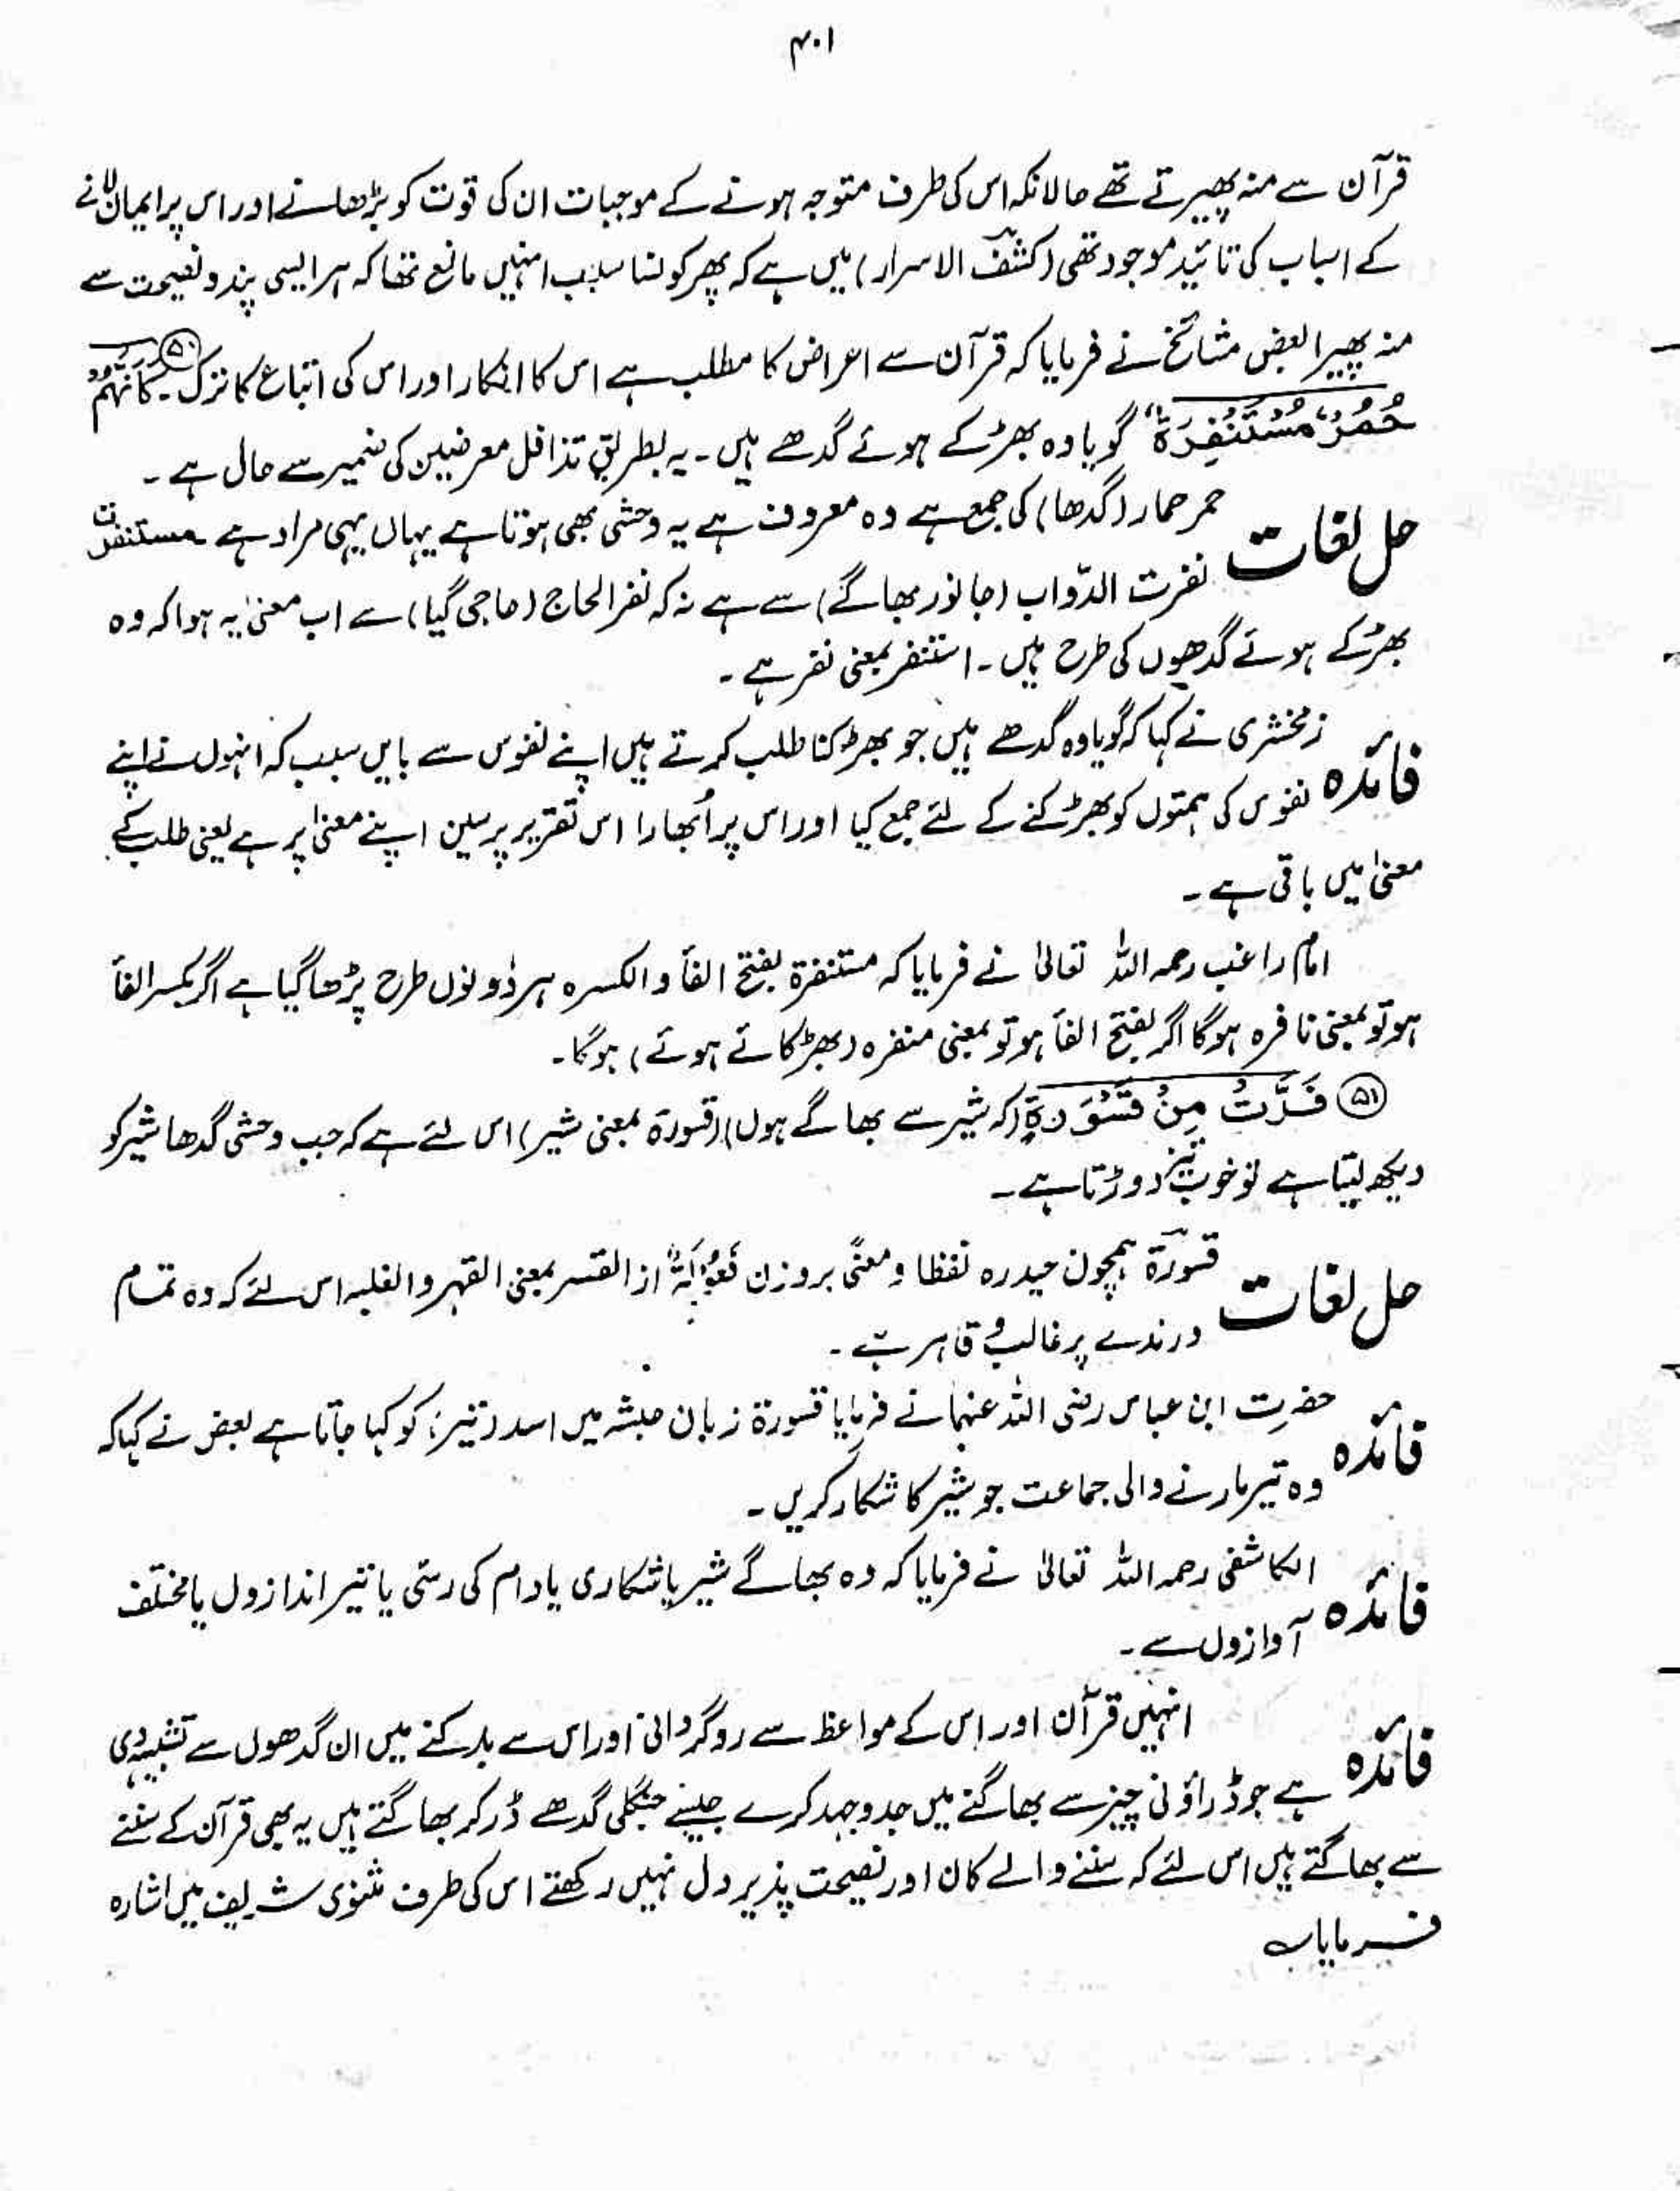 ۴۰۱
قرآن سے منہ پھیرتے تھے حالانکہ اس کی طرف متوجہ ہونے کے موجبات ان کی قوت کو بڑھانے اور اس پر ایمان لانے
کے اسباب کی تائید موجود تھی (کشف الاسرار) میں ہے کہ پھر کونسا سبب انہیں مانع تھا کہ ہر ایسی پند و نصیحت سے
منہ پھیرا بعض مشائخ نے فرمایا کہ قرآن سے اعراض کا مطلب ہے اس کا انکار اور اس کی اتباع کا ترک ۔ ۵۰ كَاَنَّهُمْ
حُمُرٌ مُّسْتَنْفِرَةٌ گویا وہ بھڑکے ہوئے گدھے ہیں ۔ یہ بطریق تذافل معرضین کی ضمیر سے حال ہے ۔
حل لغات حمر حمار (گدھا) کی جمع ہے وہ معروف ہے یہ وحشی بھی ہوتا ہے یہاں یہی مراد ہے مستنفرت
نفرت الدّواب (جانور بھاگے) سے ہے نہ کہ نفر الحاج (حاجی گیا) سے اب معنیٰ یہ ہوا کہ وہ
بھڑکے ہوئے گدھوں کی طرح ہیں ۔ استنفر بمعنی نفر ہے ۔
فائدہ زمخشری نے کہا کہ گویا وہ گدھے ہیں جو بھڑکنا طلب کرتے ہیں اپنے نفوس سے بایں سبب کہ انہوں نے اپنے
نفوس کی ہمتوں کو بھڑکنے کے لئے جمع کیا اور اس پر اُبھارا اس تقریر پر سین اپنے معنیٰ پر ہے یعنی طلب کے
معنیٰ میں باقی ہے ۔
امام راغب رحمہ اللہ تعالیٰ نے فرمایا کہ مستنفرة بفتح الفأ و الکسرہ ہر دونوں طرح پڑھا گیا ہے اگر بکسر الفأ
ہو تو بمعنی نافرہ ہوگا اگر بفتح الفأ ہو تو بمعنی منفرہ (بھڑکائے ہوئے) ہوگا ۔
۵۱ فَرَّتْ مِنْ قَسْوَرَةٍ (کہ شیر سے بھاگے ہوں) (قسورۃ بمعنی شیر) اس لئے ہے کہ جب وحشی گدھا شیر کو
دیکھ لیتا ہے تو خوب تیز دوڑتا ہے ۔
حل لغات قسورۃ ہمچون حیدرہ لفظا و معنًی بروزن فعولۃ از القسر بمعنی القہر و الغلبہ اس لئے کہ وہ تمام
درندے پر غالب و قاہر ہے ۔
فائدہ حضرت ابن عباس رضی اللہ عنہما نے فرمایا قسورۃ زبان حبشہ میں اسد (شیر) کو کہا جاتا ہے بعض نے کہا کہ
وہ تیر مارنے والی جماعت جو شیر کا شکار کریں ۔
فائدہ الکاشفی رحمہ اللہ تعالیٰ نے فرمایا کہ وہ بھاگے شیر یا شکاری یا دام کی رسّی یا تیر اندازوں یا مختلف
آوازوں سے ۔
فائدہ انہیں قرآن اور اس کے مواعظ سے روگردانی اور اس سے بدکنے میں ان گدھوں سے تشبیہ دی
ہے جو ڈراؤنی چیز سے بھاگنے میں جد و جہد کرے جیسے جنگلی گدھے ڈر کر بھاگتے ہیں یہ بھی قرآن کے سننے
سے بھاگتے ہیں اس لئے کہ سننے والے کان اور نصیحت پذیر دل نہیں رکھتے اس کی طرف مثنوی شریف میں اشارہ
فرمایا ہے